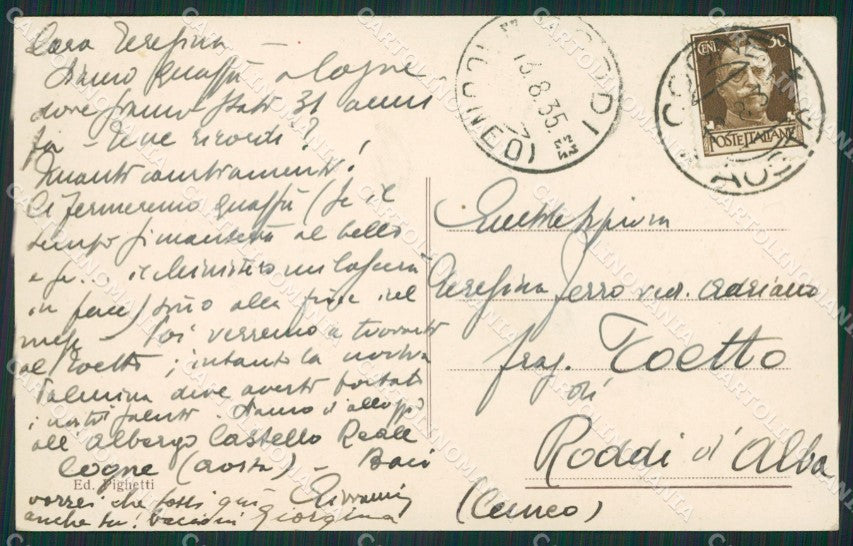 Cara Teresina -
siamo quassù a Cogne
dove siamo stati 31 anni
fa - Te ne ricordi?
Quanti cambiamenti!
Ci fermeremo quassù (se il
tempo si manterrà al bello
e se.. il Ministero mi lascerà
in pace) sino alla fine del
mese - Poi verremo a trovarti
al Toetto; intanto la nostra
deve averti portati
i nostri saluti. Siamo d'alloggio
all'Albergo Castello Reale
Cogne (Aosta) - Baci
Giovanni
vorrei che fossi qui
anche tu! bacioni Giorgina
Ed. Pighetti
RODDI
13.8.35.
(CUNEO)
CENT. 30
POSTE ITALIANE
COGNE
AOSTA
Teresina Ferro ved. Adriano
fraz. Toetto
di
Roddi d'Alba
(Cuneo)
CARTOLINOMANIA